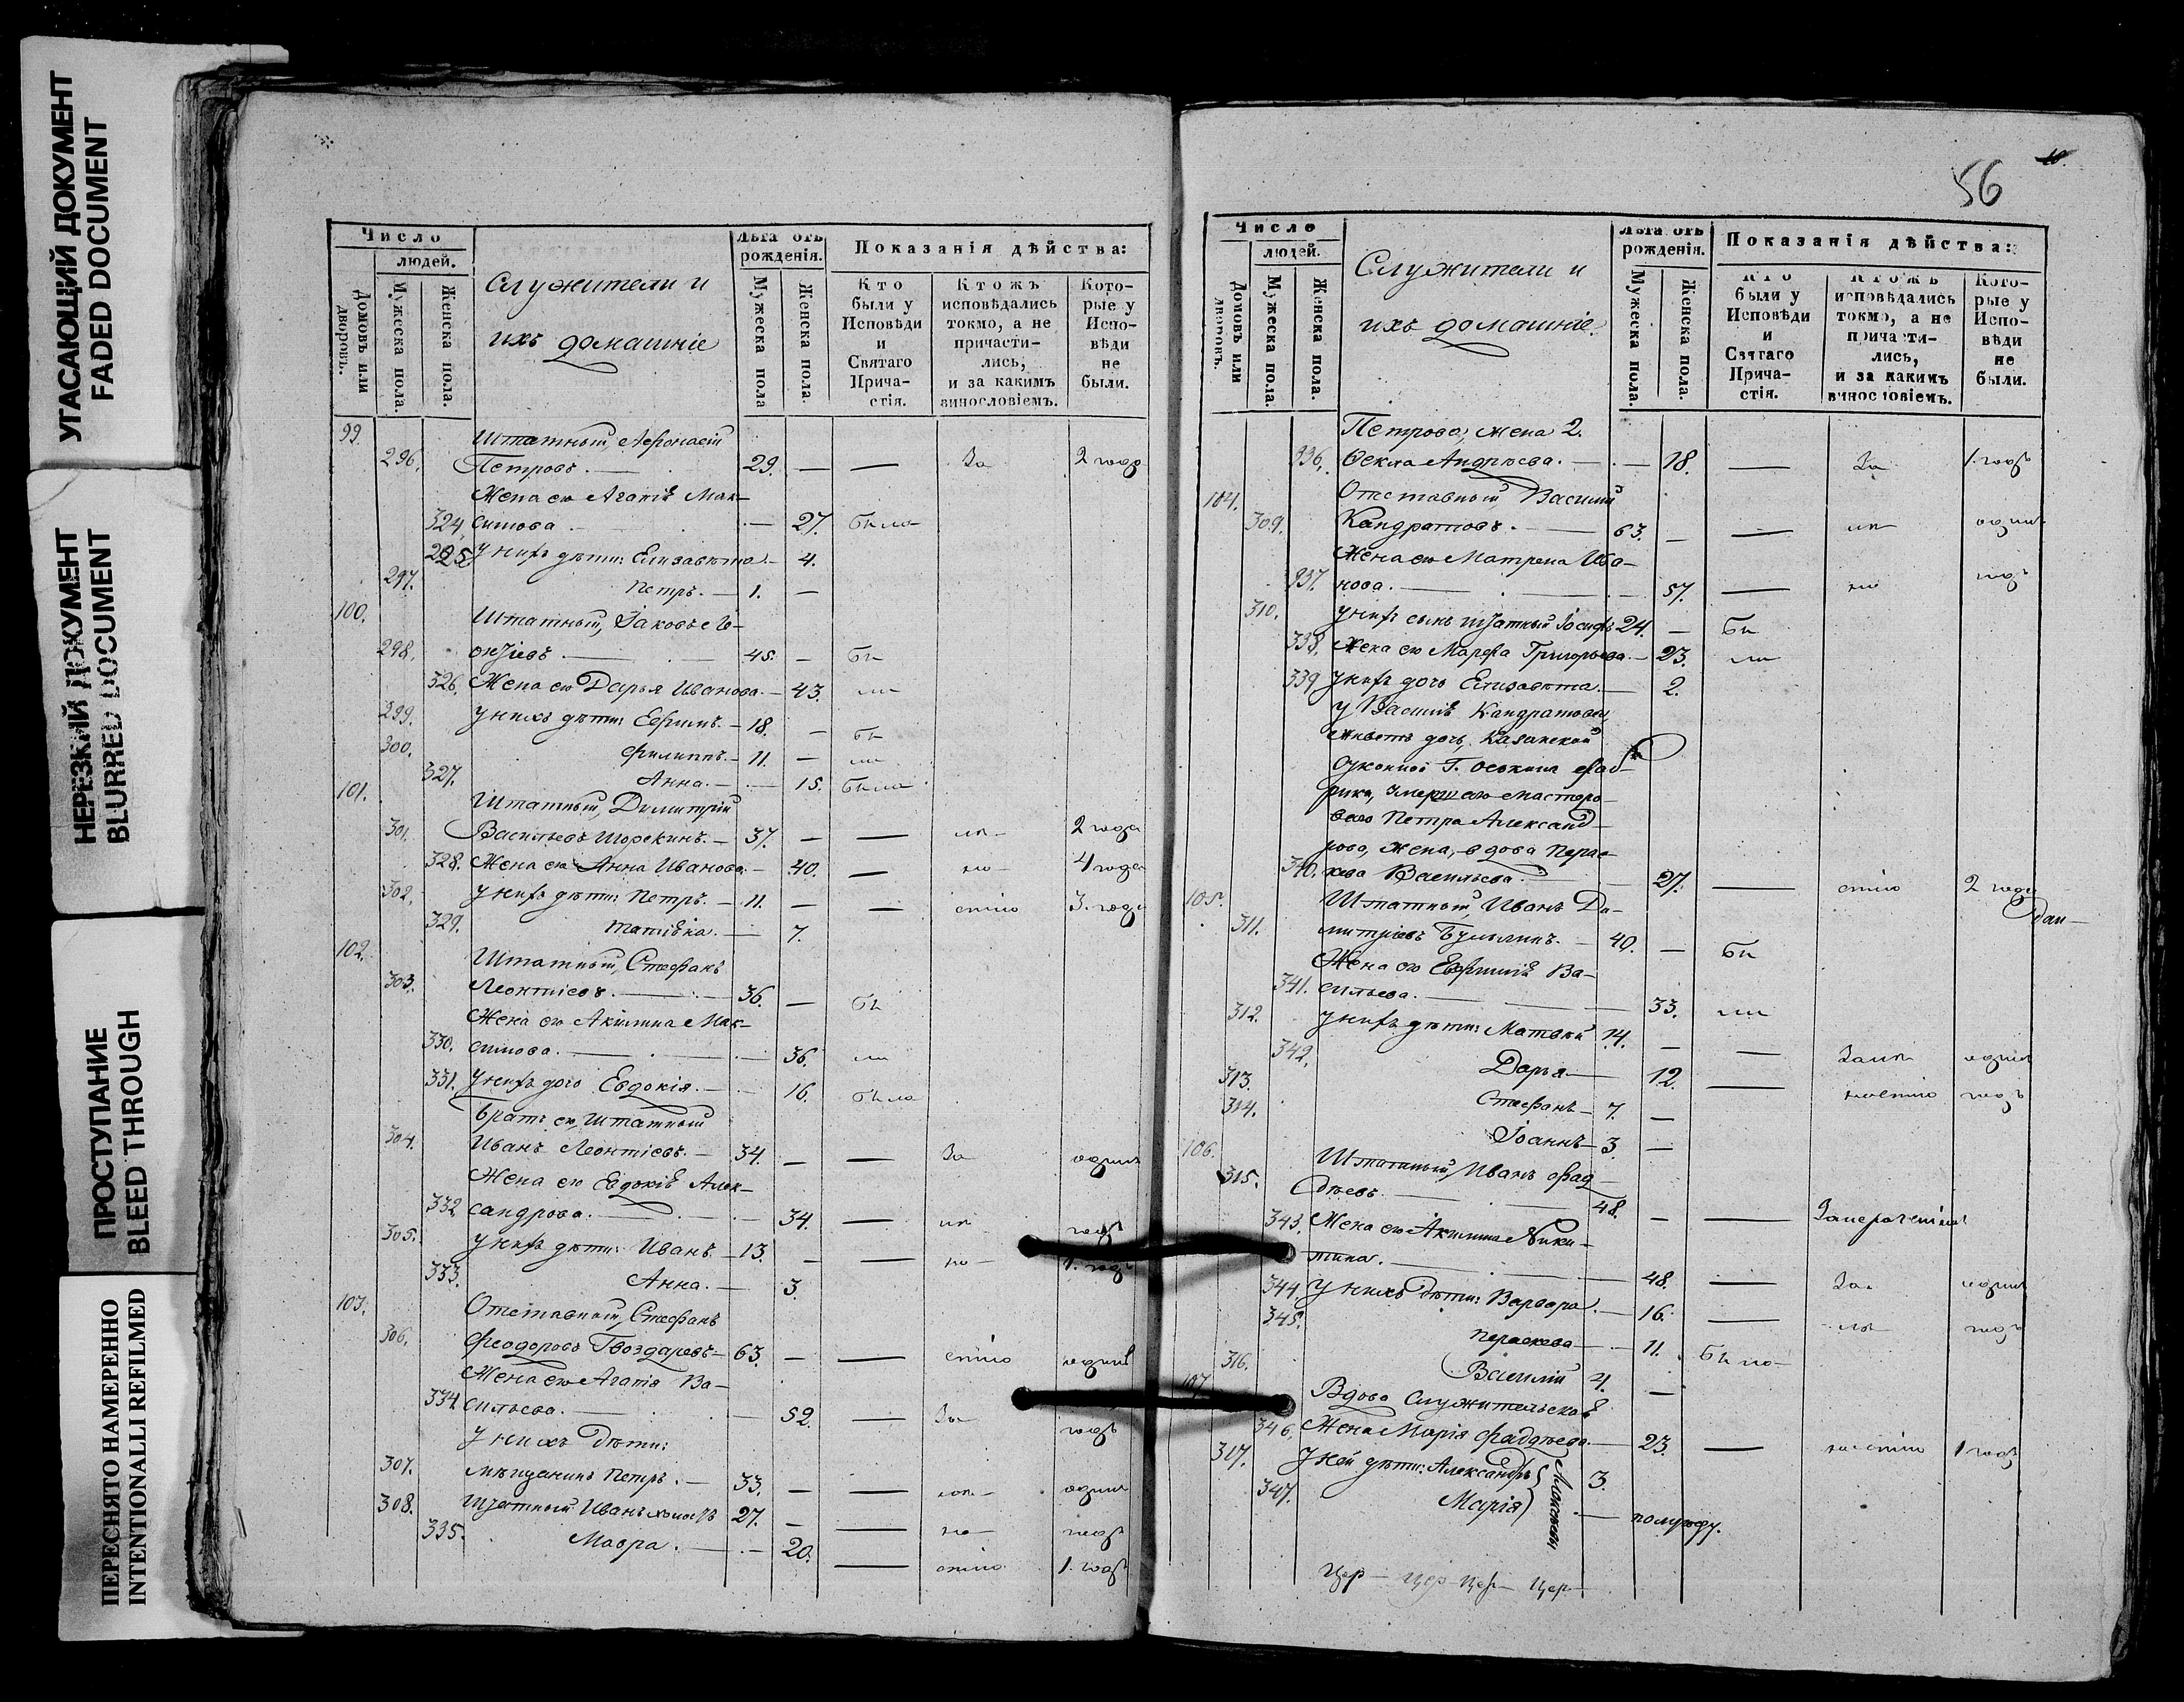 УГАСАЮЩИЙ ДОКУМЕНТ
FADED DOCUMENT
НЕРЕЗКИЙ ДОКУМЕНТ
BLURRED DOCUMENT
ПРОСТУПАНИЕ
BLEED THROUGH
ПЕРЕСНЯТО НАМЕРЕННО
INTENTIONALLI REFILMED
Число
людей.
Домовъ или дворовъ.
Мужеска пола.
Женска пола.
Служители и
ихъ домашніе
Лѣта отъ рожденія.
Мужеска пола
Женска пола.
Показанія дѣйства:
Кто были у Исповѣди и Святаго Прича-стія.
Ктожъ исповѣдались токмо, а не причасти-лись, и за какимъ винословіемъ.
Кото-рые у Испо-вѣди не были.
99.
Штатный, Афонасій
296. Петровъ. 29. — — За 2 года
Жена его Агапія Мак-
324. симова 27. была
325 у нихъ дѣти: Елизавѣта 4.
297. Петръ. 1. —
100.
Штатный, Іаковъ
298. 45. — бы
326. Жена его Дарья Иванова. 43. ли
299. у нихъ дѣти: Ефимъ. 18. — бы
300. Филиппъ. 11. — ли
327. Анна. 15. была
101.
Штатный, Димитрій
301. Васильевъ 37. — — 2 года
328. Жена его Анна Иванова. 40. — 4 года
302. у нихъ дѣти: Петръ. 11. — — стію 3. года
329. 7.
102.
Штатный, Стефанъ
303. Леонтіевъ. 36. — бы
Жена его Акилина Мак-
330. симова. 36. ли
331. у нихъ дочь Евдокія. 16. была
братъ его, Штатный
304. Иванъ Леонтіевъ. 34. — — За одинъ
Жена его Евдокія Алек-
332 сандрова. 34. — годъ
305. у нихъ дѣти: Иванъ. 13. — — 1. годъ
333. Анна. 3.
103.
Отставный, Стефанъ
306. Феодоровъ Гвоздаревъ 63. — — стію одинъ
Жена его Агапія Ва-
334 сильева. 52. — За годъ
у нихъ дѣти:
307. мѣщанинъ Петръ. 33. — — одинъ
308. Штатный Иванъ 27. — — годъ
335. Мавра. 20. — стію 1. годъ
56
Число
людей.
Домовъ или дворовъ.
Мужеска пола.
Женска пола.
Служители и
ихъ домашніе.
Лѣта отъ рожденія.
Мужеска пола.
Женска пола.
Показанія дѣйства:
Кто были у Исповѣди и Святаго Прича-стія.
Ктожъ исповѣдались токмо, а не причасти-лись, и за какимъ винословіемъ.
Кото-рые у Испо-вѣди не были.
Петрова, жена 2.
336. Ѳекла Андрѣева. 18. — За 1. годъ
104.
Отставный, Василій
309. Кандратовъ. 63. — — одинъ
Жена его Матрена Ива-
337. нова. 57. — годъ
310. у нихъ сынъ штатный Іосифъ 24. — бы
338. Жена его Марфа Григорьева. 23. ли
339 у нихъ дочь Елизавѣта. 2.
у Василія Кандратова,
живетъ дочь, Казанской
Суконной Г. Осокина фаб-
рики, умершаго мастеро-
ваго Петра Александ-
рова, жена, вдова Парас-
340. кева Васильева. 27. — стію 2 года
105.
Штатный, Иванъ Ди-
311. митріевъ 40. — бы
Жена его Евфимія Ва-
341. сильева. 33. ли
312. у нихъ дѣти: Матвей 14. — — одинъ
342. Дарья. 12. — годъ
313. Стефанъ 7. —
314. Іоаннъ 3. —
106.
Штатный, Иванъ Фад-
315. дѣевъ. 48. — —
343. Жена его Акилина Ники-
тина. 48. — За одинъ
344. у нихъ дѣти: Варвара. 16. — годъ
345. Параскева 11. была
316. Василій 4. —
107.
Вдова Служительская
346. Жена Марія Фаддѣева. 23. — 1 годъ
317. у ней дѣти: Александръ 3.
347. Марія полугоду.
Цер— Цер— Цер— Цер—